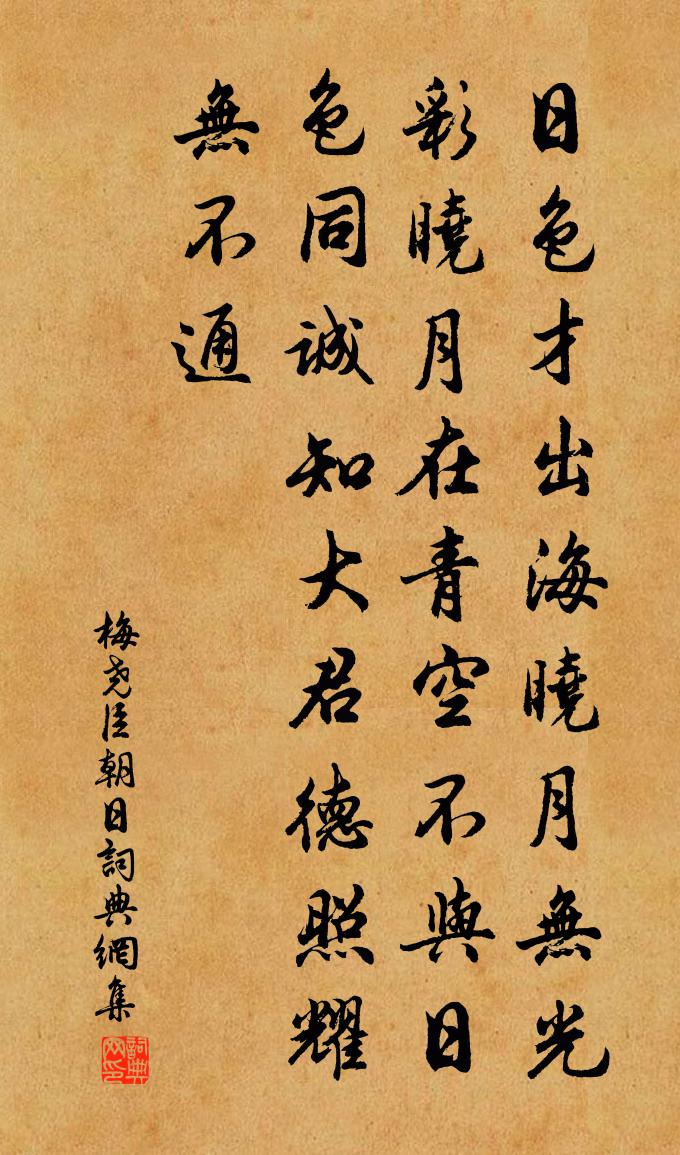 日色才出海曉月無光
彩曉月在青空不與日
色同誠知大君德照耀
無不通
梅尧臣朝日詞典網集
詞典网印